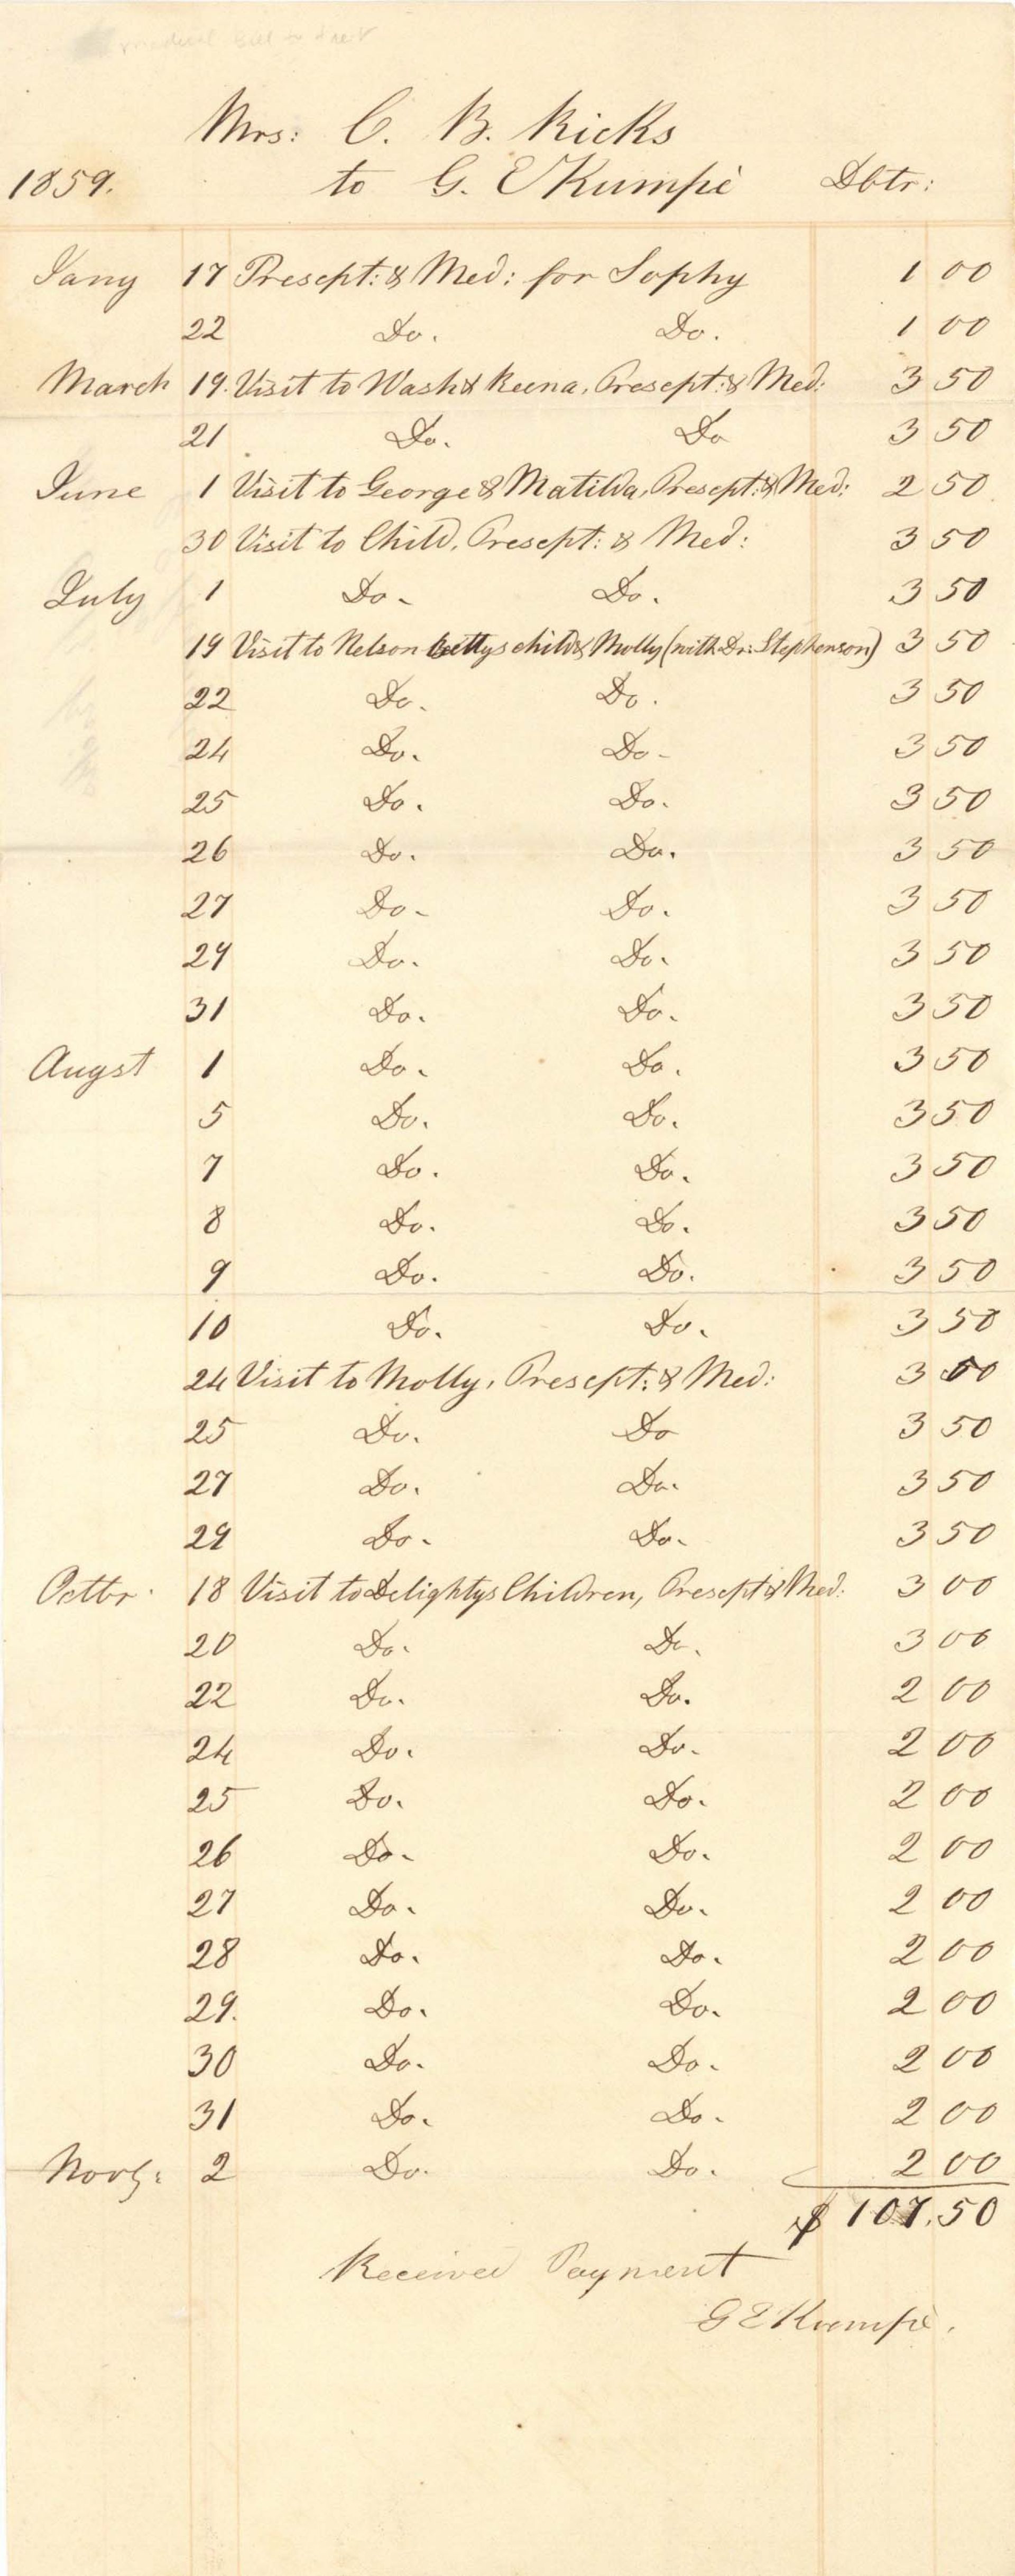 Mrs: C. B. Ricks
1859. to G. E Kumpé Dbtr:
Jany 17 Presept: & Med: for Sophy 1 00
22 Do. Do. 1 00
March 19. Visit to Wash & Reena, Presept: & Med: 3 50
21 Do. Do 3 50
June 1 Visit to George & Matilda, Presept: & Med: 2 50
30 Visit to Child, Presept: & Med: 3 50
July 1 Do. Do. 3 50
19 Visit to Nelson bettys child & Molly (with Dr: Stephenson) 3 50
22 Do. Do. 3 50
24 Do. Do. 3 50
25 Do. Do. 3 50
26 Do. Do. 3 50
27 Do. Do. 3 50
29 Do. Do. 3 50
31 Do. Do. 3 50
Augst 1 Do. Do. 3 50
5 Do. Do. 3 50
7 Do. Do. 3 50
8 Do. Do. 3 50
9 Do. Do. 3 50
10 Do. Do. 3 50
24 Visit to Molly, Presept: & Med: 3 50
25 Do. Do 3 50
27 Do. Do. 3 50
29 Do. Do. 3 50
Octbr. 18 Visit to Delightys Children, Presept: & Med: 3 00
20 Do. Do. 3 00
22 Do. Do. 2 00
24 Do. Do. 2 00
25 Do. Do. 2 00
26 Do. Do. 2 00
27 Do. Do. 2 00
28 Do. Do. 2 00
29. Do. Do. 2 00
30 Do. Do. 2 00
31 Do. Do. 2 00
Novb: 2 Do. Do. 2 00
$ 107.50
Received Payment
G E Kumpé.